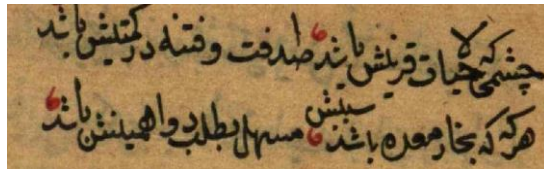 چشمی که خیالات قرینش باشد صد افت و فتنه در کمینش باشد
هرکه که بخار معده باشد سببش مسهل بطلب دوا همینش باشد